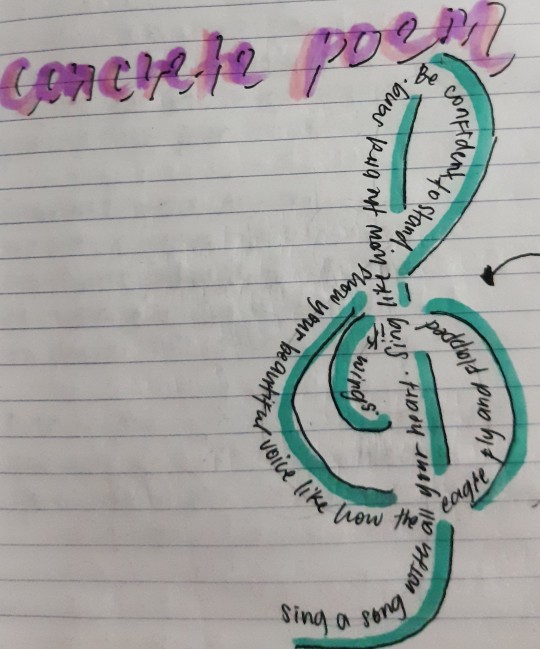 concrete poem
sing a song with all your heart.
sing like how the bird
Be confident to stand.
show your beautiful voice like how the eagle fly and flapped
its wings